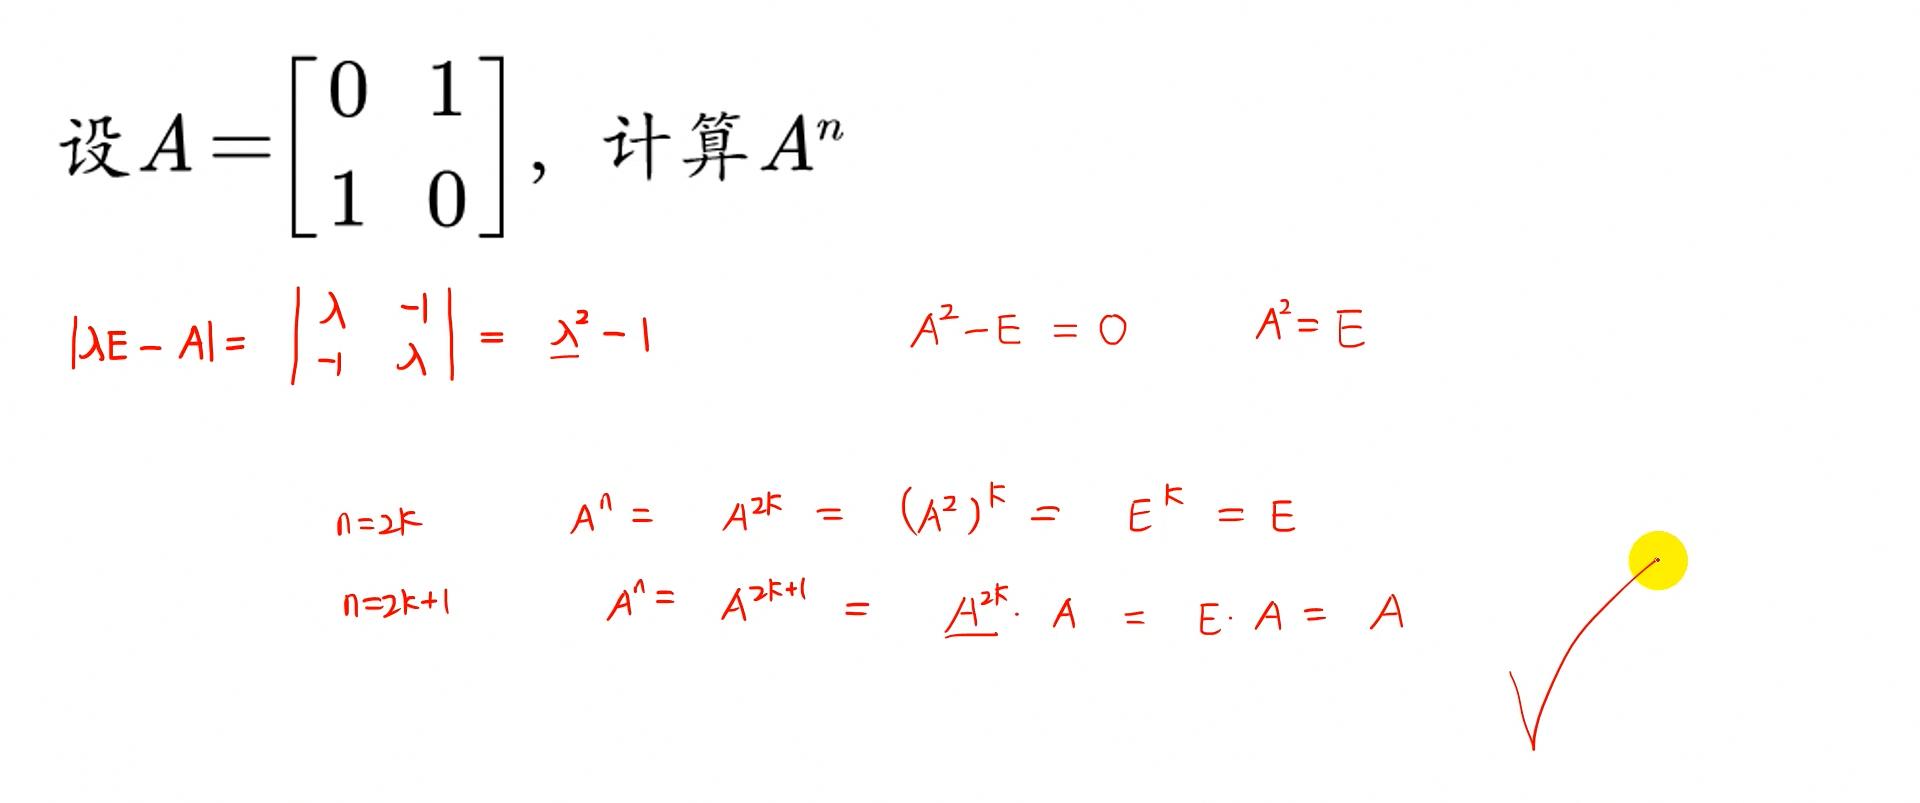 设 A = [0 1; 1 0], 计算 Aⁿ
|λE - A| = |λ -1; -1 λ| = λ² - 1 A² - E = 0 A² = E
n=2k Aⁿ = A²ᵏ = (A²)ᵏ = Eᵏ = E
n=2k+1 Aⁿ = A²ᵏ⁺¹ = A²ᵏ · A = E · A = A